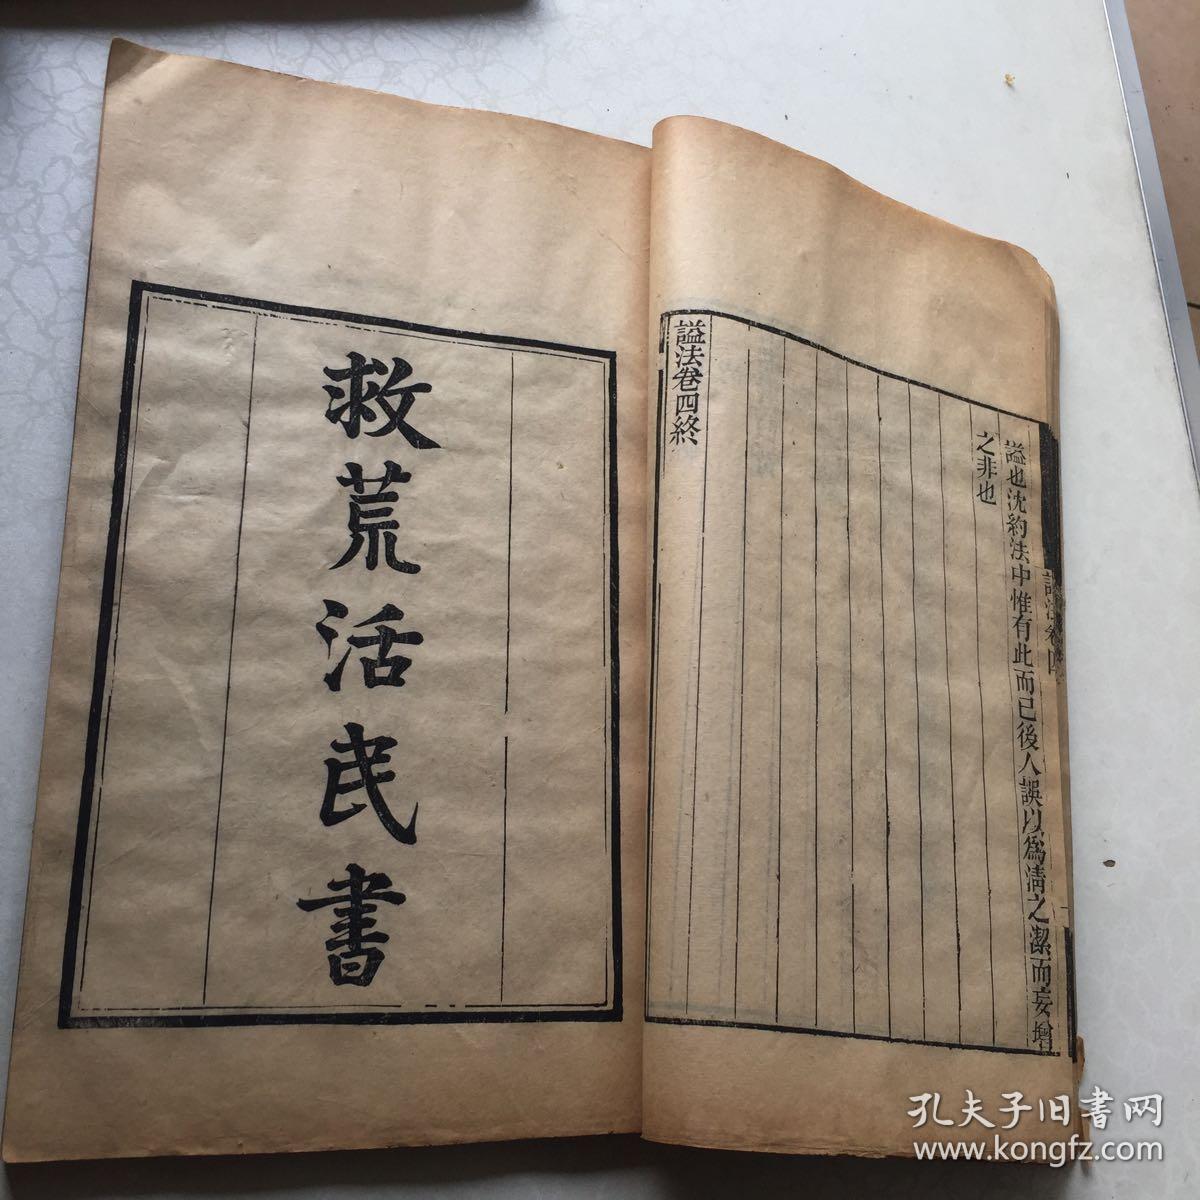 謚法卷四
謚也沈約法中惟有此而已後人誤以爲清之潔而妄增
之非也
謚法卷四終
救荒活民書
孔夫子旧書网
www.kongfz.com